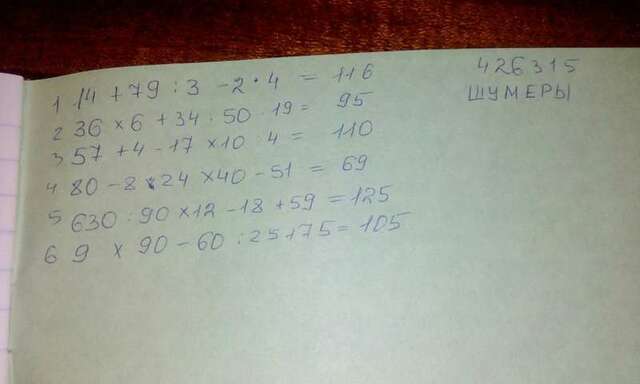 1 14 + 79 : 3 - 2 · 4 = 116
2 36 × 6 + 34 : 50 · 19 = 95
3 57 + 4 - 17 × 10 : 4 = 110
4 80 - 8 : 24 × 40 - 51 = 69
5 630 : 90 × 12 - 18 + 59 = 125
6 9 × 90 - 60 : 25 + 75 = 105
426315
ШУМЕРЫ